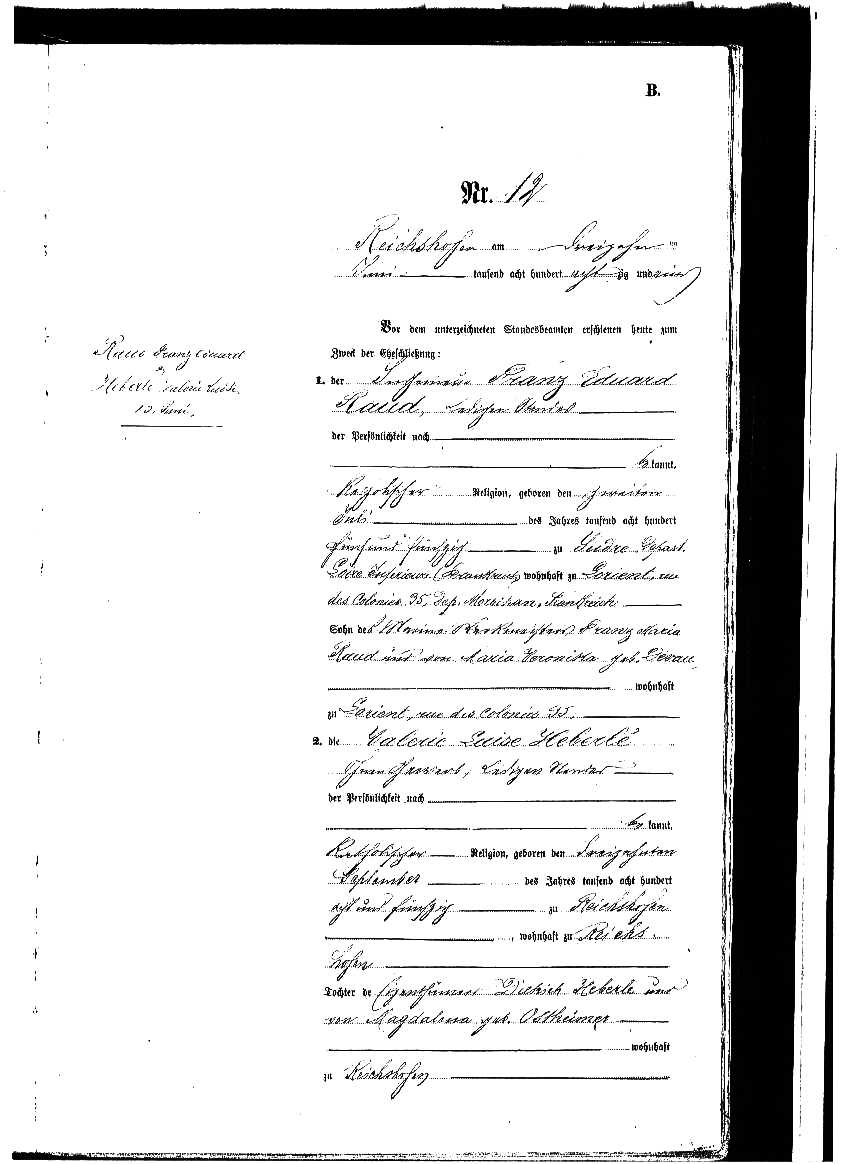 B.
Nr. 12
Reichshofen am Dreizehn ten
Juni tausend acht hundert acht zig und ein
Vor dem unterzeichneten Standesbeamten erschienen heute zum
Zweck der Eheschließung:
Raud Franz Eduard
Heberle Valerie Luise
13. Juni.
1. der Franz Eduard
Raud, Ledigen Standes
der Persönlichkeit nach
be kannt,
Katholischer Religion, geboren den zweiten
Juli des Jahres tausend acht hundert
fünf und fünfzig zu Indre Depart.
Loire Inferieure (Frankreich) wohnhaft zu Lorient, rue
des Colonies 35, Dep. Morbihan, Frankreich
Sohn des Marine Werkmeisters Franz Maria
Raud und von Maria Veronika geb. Devau
wohnhaft
zu Lorient, rue des Colonies 35.
2. die Valerie Luise Heberlé
Ohne Gewerb, Ledigen Standes
der Persönlichkeit nach
be kannt,
Katholischer Religion, geboren den dreizehnten
September des Jahres tausend acht hundert
acht und fünfzig zu Reichshofen
, wohnhaft zu Reichs
hofen
Tochter de Eigenthümers Heberle und
von Magdalena geb. Ostheimer
wohnhaft
zu Reichshofen